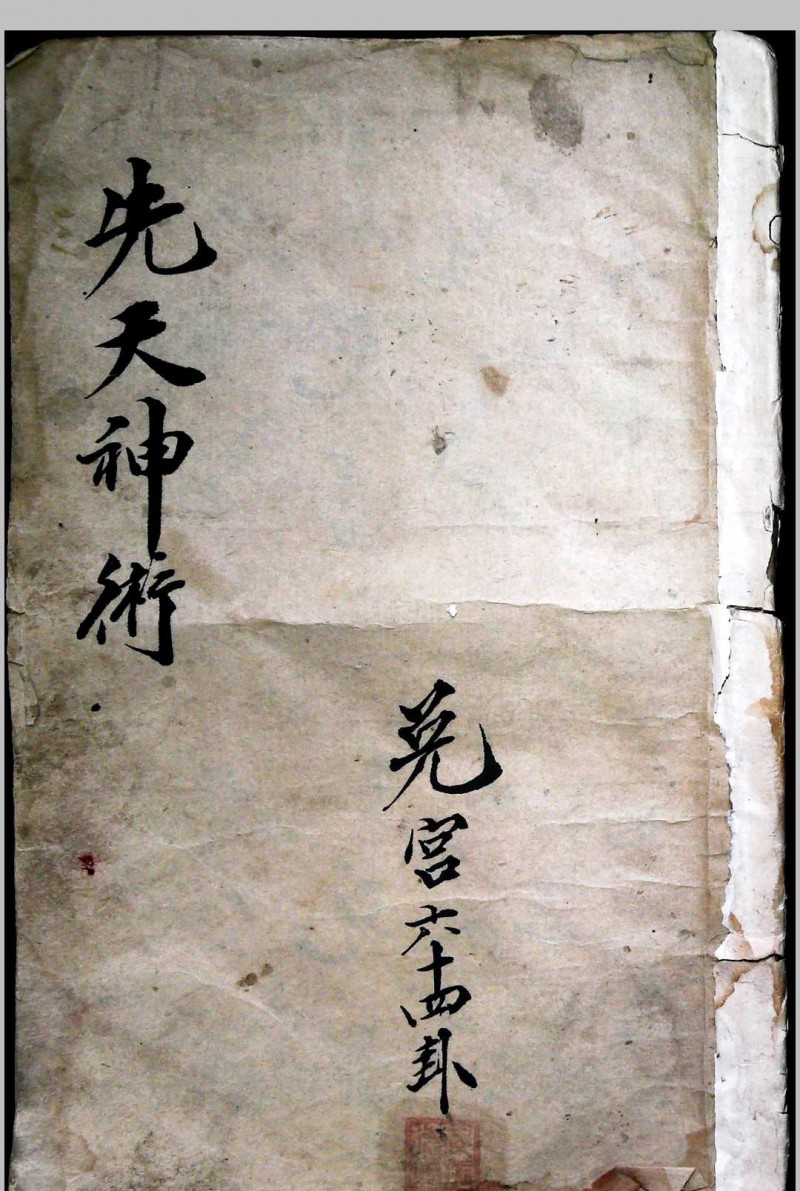 先天神術
兑宮六十四卦